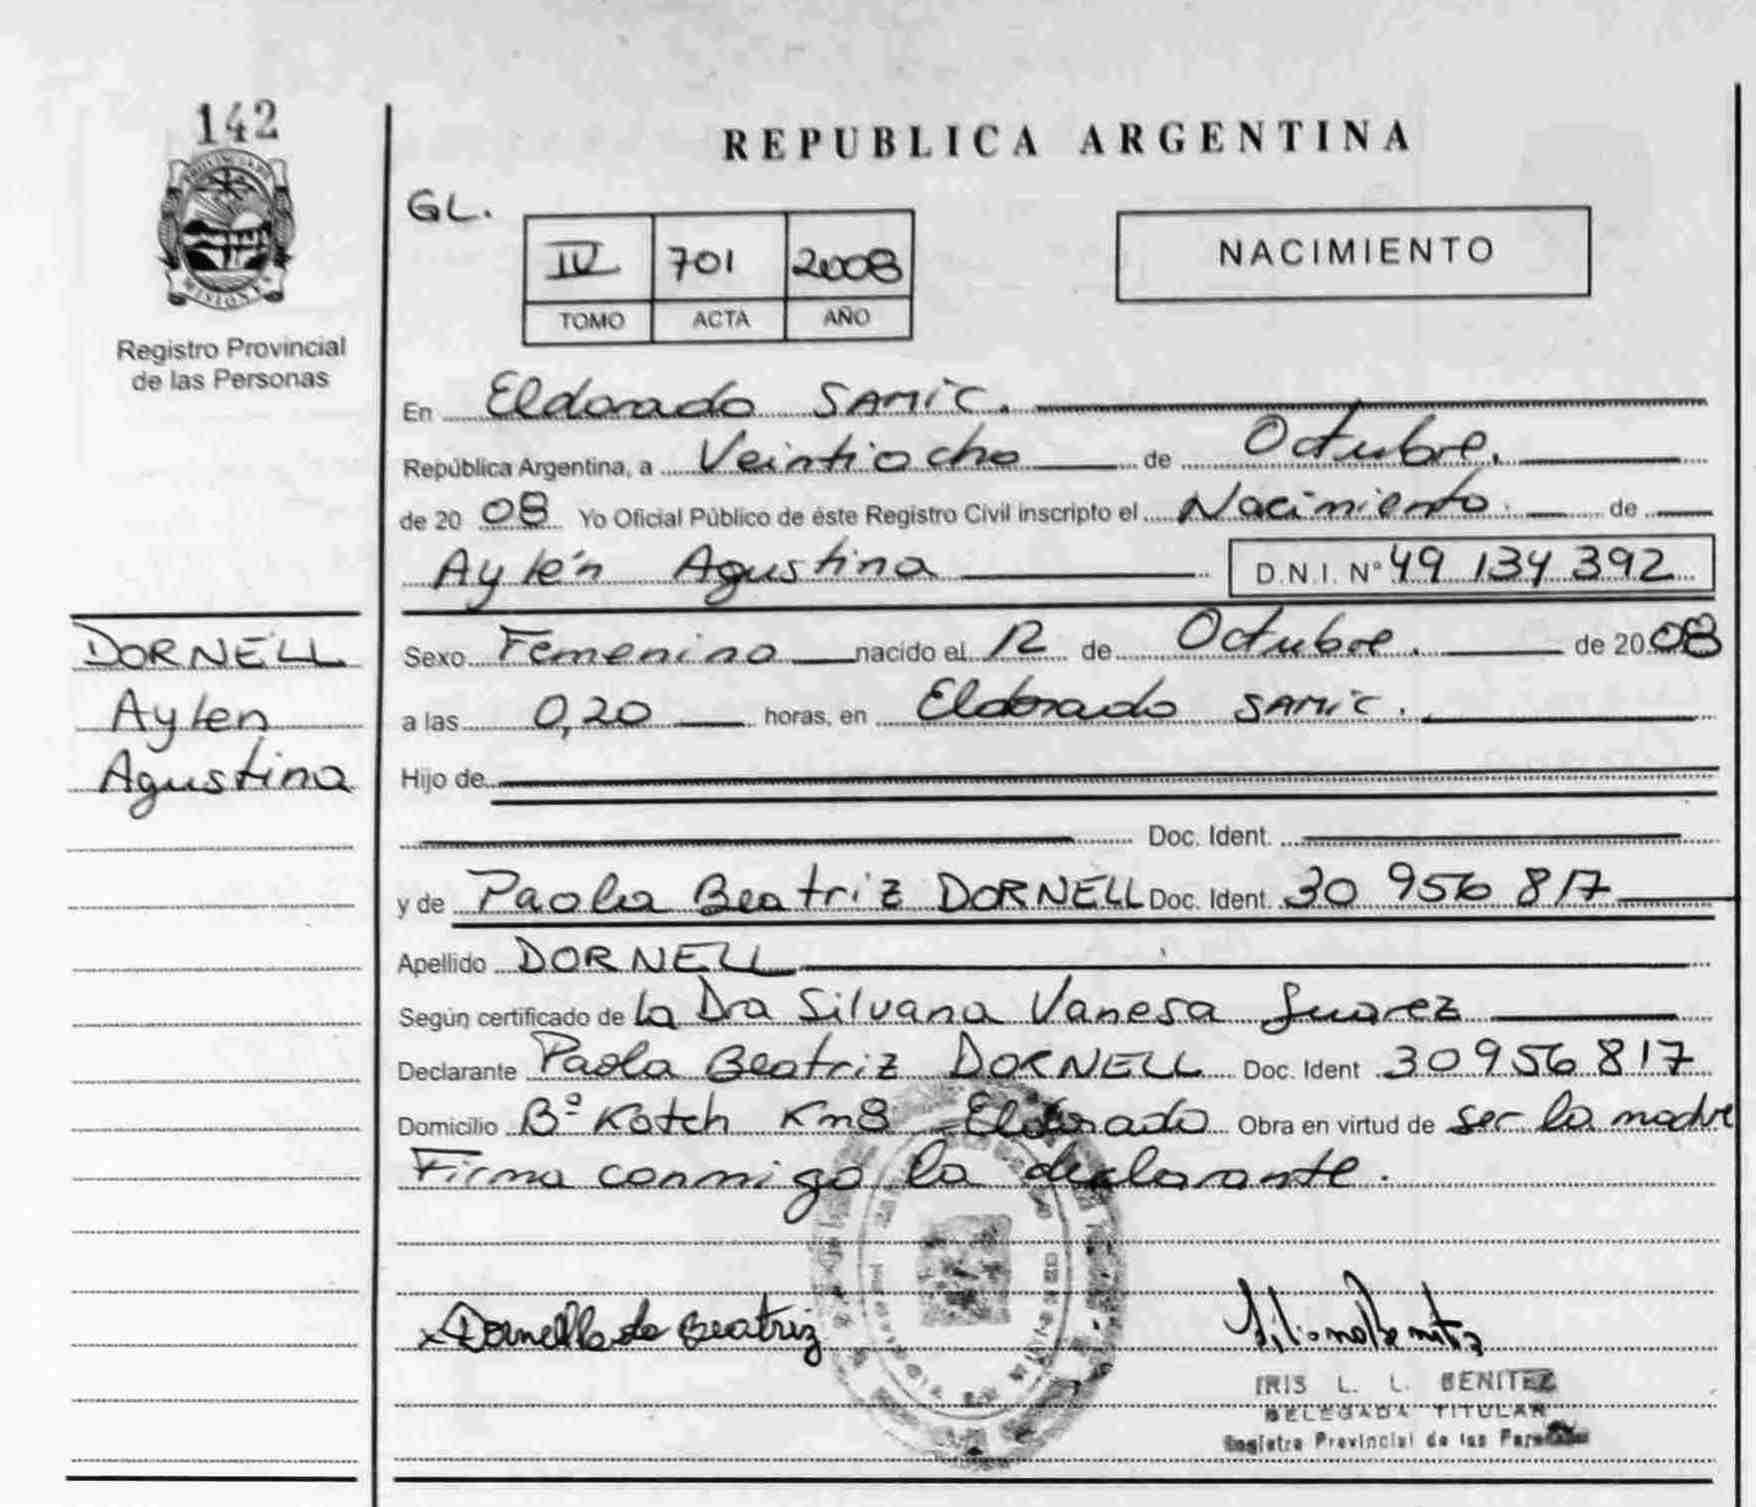 142
REPUBLICA ARGENTINA
PROVINCIA DE
MISIONES
Registro Provincial
de las Personas
GL.
IV 701 2008
TOMO ACTA AÑO
NACIMIENTO
En Eldorado SAMIC.
República Argentina, a Veintiocho de Octubre.
de 2008 Yo Oficial Público de éste Registro Civil inscripto el Nacimiento. de
Aylén Agustina D.N.I. Nº 49 134 392
DORNELL
Aylen
Agustina
Sexo Femenino nacido el 12 de Octubre. de 2008
a las 0,20 horas, en Eldorado SAMIC.
Hijo de
Doc. Ident.
y de Paola Beatriz DORNELL Doc. Ident. 30 956 817
Apellido DORNELL
Según certificado de la Dra Silvana Vanesa Suarez
Declarante Paola Beatriz DORNELL Doc. Ident 30 956 817
Domicilio Bº Kotch Km8 Eldorado Obra en virtud de ser la madre
Firma conmigo la declarante.
Beatriz
IRIS L. L. BENITEZ
DELEGADA TITULAR
Registro Provincial de las Personas